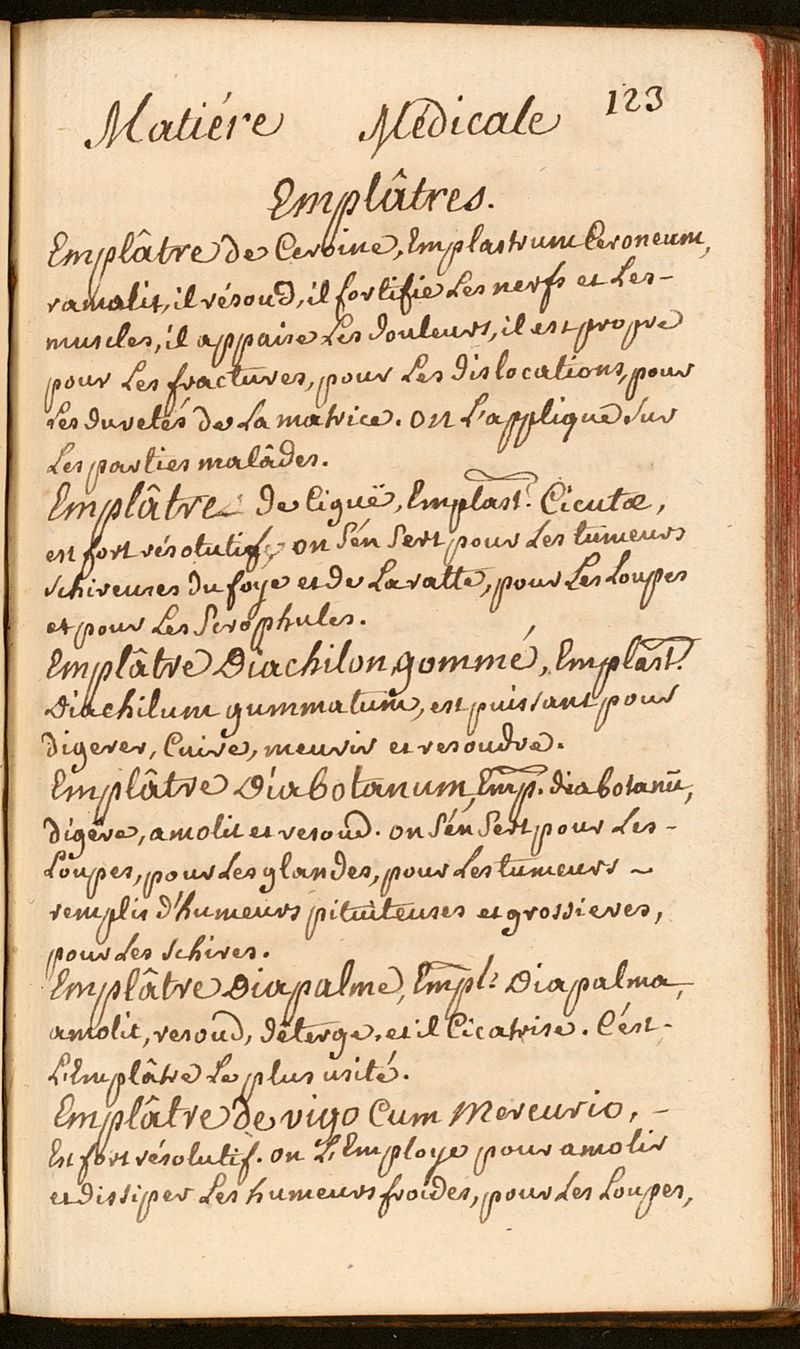 123
Matiére Médicale
Emplâtres.
Emplâtre de Ceroine, Emplastrum Ceroneum,
ramolit, il résoud, il fortifie Les nerfs et Les-
muscles, il appaise Les douleurs, il est propre
pour Les fractures, pour Les dislocations, pour
Les duretés de La matrice. on L'applique sur
Les parties malâdes.
Emplâtre de Ciguë, Emplast. Cicutæ,
est fort résolutif, on s'én sert pour Les tumeurs
schireuses du foye et de La ratte, pour Les Loupes
et pour Les scrophules.
Emplâtre Diachilon gommé, Emplast.
Diachilum gummatum, est puissant pour
digerer, Cuire, meurir et resoudre.
Emplâtre Diabotanum, Emp. diabotanū,
digére, amolit et resoud. on s'én sert pour Les-
Loupes, pour Les glandes, pour Les tumeurs ~
remplis d'humeurs pituiteuses et grossieres,
pour Les schires.
Emplâtre Diapalme, Empl. Diapalma,
amolit, resoud, déterge, et il Cicatrise. C'ést-
L'Emplâtre Le plus usité.
Emplâtre de vigo Cum Mercurio, -
Est fort résolutif. on L'Employe pour amolir
et dissiper Les humeurs froides, pour Les Loupes,